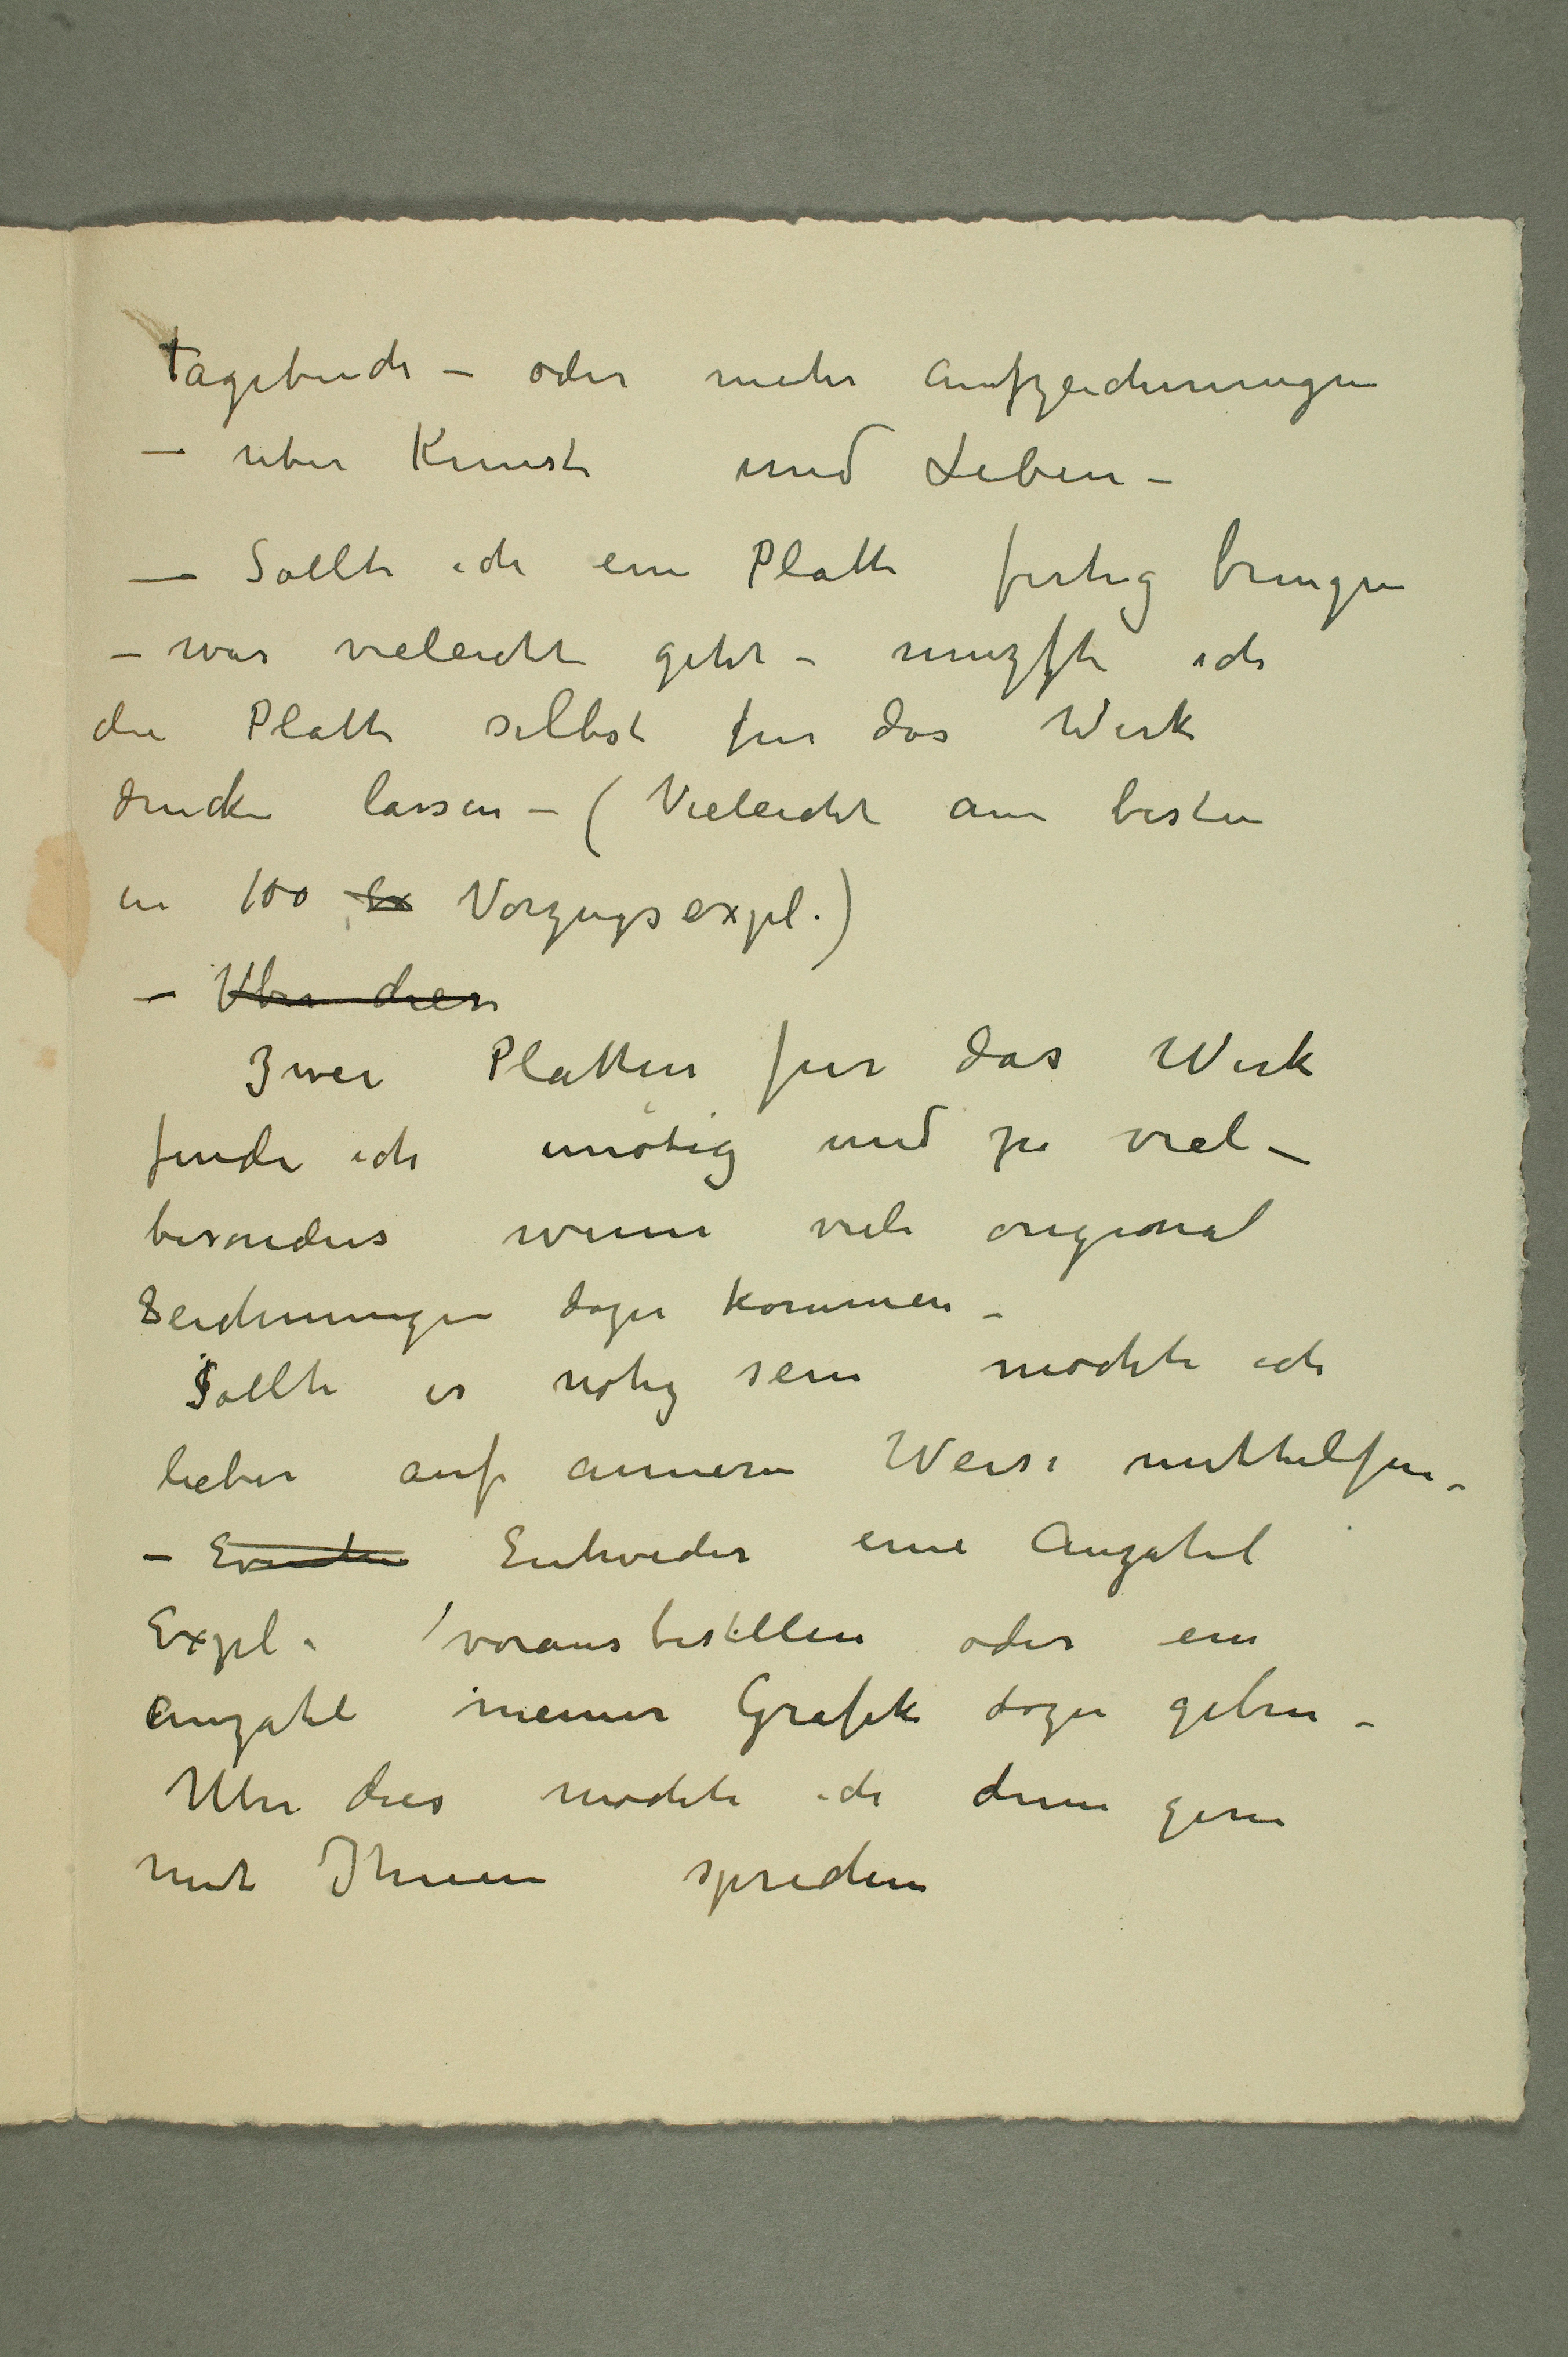 Tagebuch – oder mehr Aufzeichnungen
– uber Kunst und Leben –
– Sollte ich eine Platte fertig bringen
– was vieleicht geht – muzfte ich
die Platte selbst fur das Werk
drucken lassen – (Vieleicht am besten
in 100 Ex Vorzugsexpl.)
– Uber dies
Zwei Platten fur das Werk
finde ich unötig und zu viel –
besonders wenn viele original
Zeichnungen dazu kommen –
Sollte es nötig sein mochte ich
lieber auf anneren Weise mithelfen –
– Eventu Entweder eine Anzahl
Expl. vorausbestellen oder ein
Anzahl meiner Grafik dazu geben –
Uber dies mochte ich denn gern
mit Ihnen sprechen